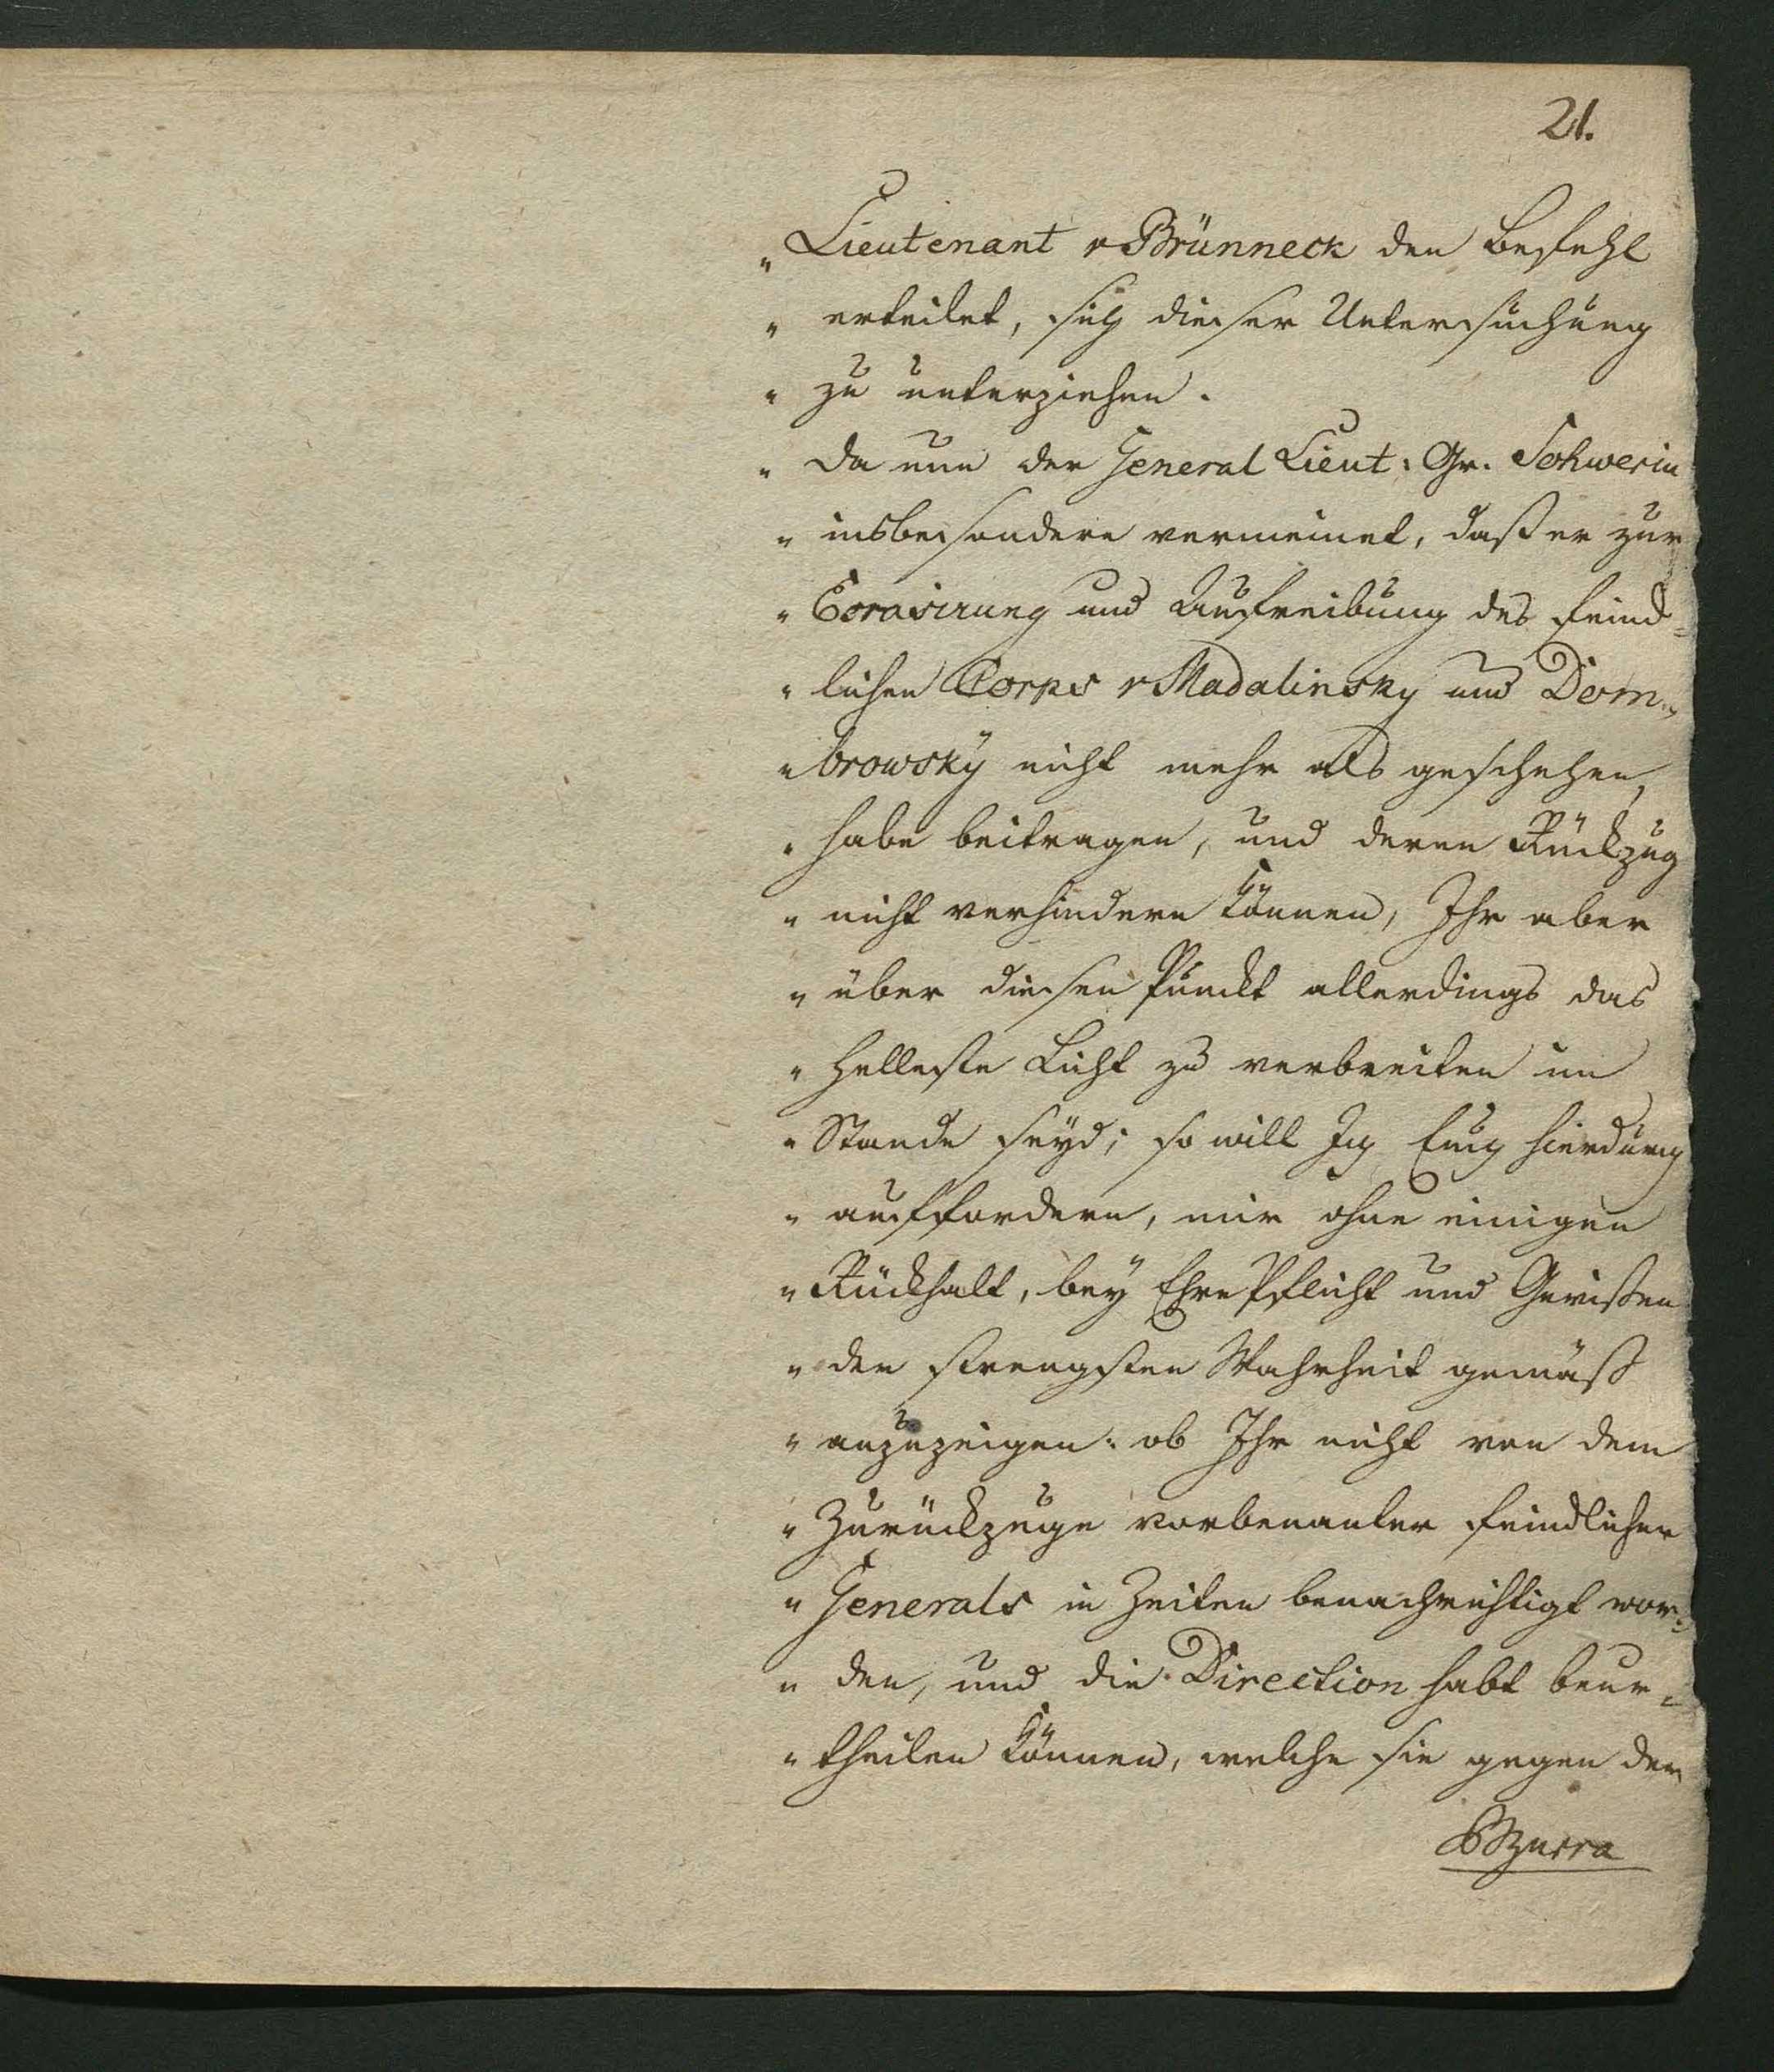 21.
„ Lieutenant v Brünneck den Befehl
„ erteilet, sich dieser Untersuchung
„ zu unterziehen.
„ Da nun der General Lieut: Gr. Schwerin
„ insbesondere vermeinet, daß er zur
„ Ecrasirung und Aufreibung des feind=
„ lichen Corps v Madalinsky und Dom=
„ browsky nicht mehr als geschehen,
„ habe beitragen, und deren Rückzug
„ nicht verhindern können, Ihr aber
„ über diesen Punckt allerdings das
„ Helleste Licht zu verbreiten im
„ Stande seyd; so will Ich Euch hierdurch
„ auffordern, mir ohne einigen
„ Rückhalt, bey Ehre Pflicht und Gewißen
„ der strengsten Wahrheit gemäß
„ anzuzeigen: ob Ihr nicht von dem
„ Zurückzuge vorbenanter feindlicher
„ Generals in Zeiten benachrichtigt wor=
„ den, und die Direction habt beur=
„ theilen können, welche sie gegen den
Bzurra